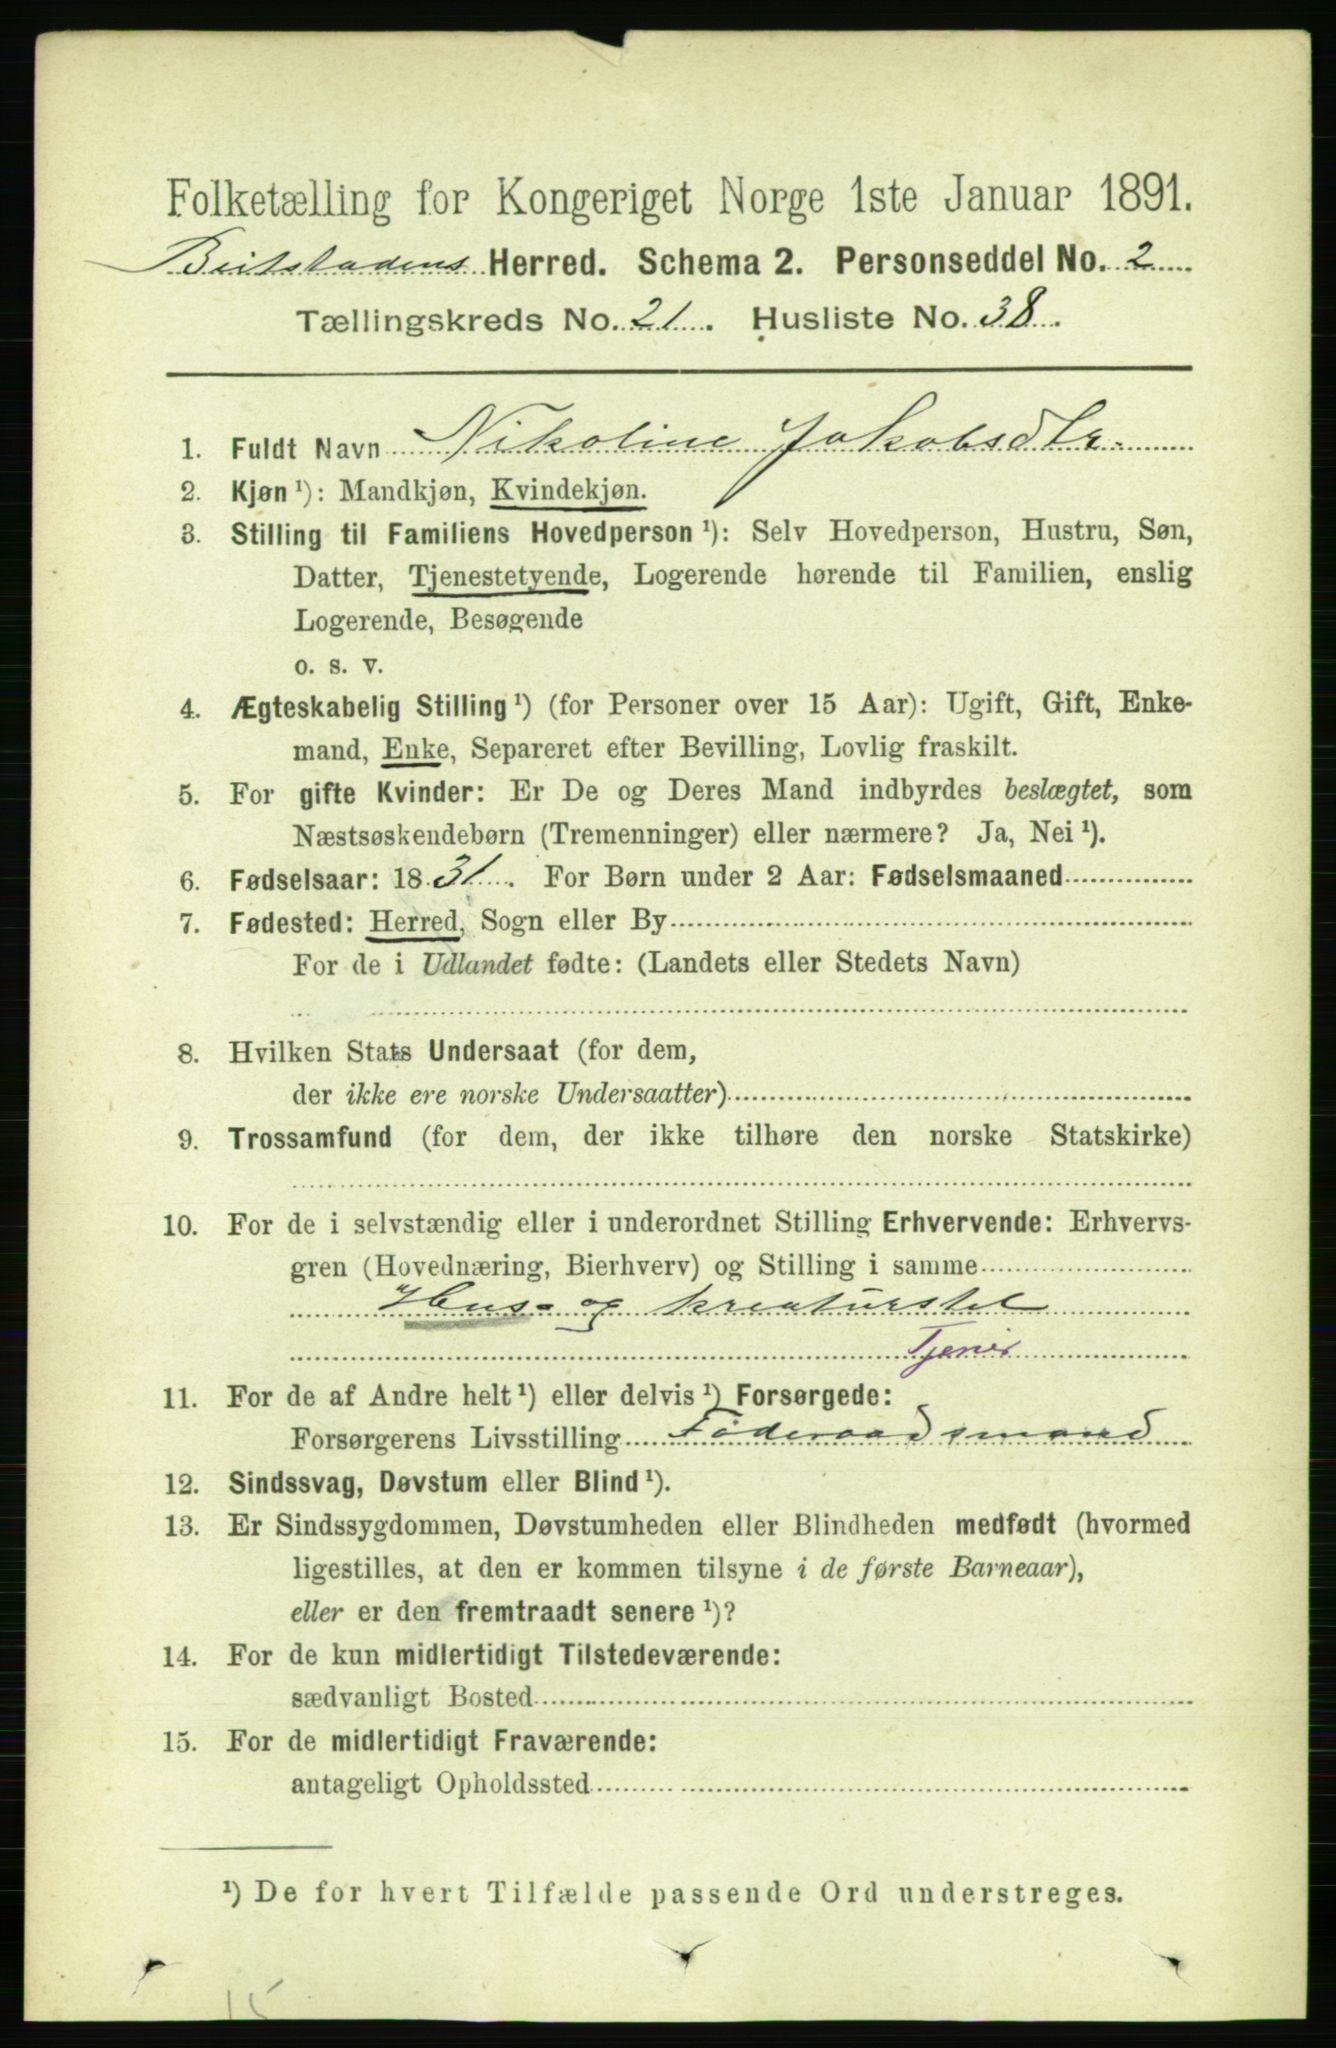 Folketælling for Kongeriget Norge 1ste Januar 1891.
Beitstadens Herred. Schema 2. Personseddel No. 2
Tællingskreds No. 21. Husliste No. 38.
1. Fuldt Navn Nikoline Jakobsdtr.
2. Kjøn ¹): Mandkjøn, Kvindekjøn.
3. Stilling til Familiens Hovedperson ¹): Selv Hovedperson, Hustru, Søn,
Datter, Tjenestetyende, Logerende hørende til Familien, enslig
Logerende, Besøgende
o. s. v.
4. Ægteskabelig Stilling ¹) (for Personer over 15 Aar): Ugift, Gift, Enke-
mand, Enke, Separeret efter Bevilling, Lovlig fraskilt.
5. For gifte Kvinder: Er De og Deres Mand indbyrdes beslægtet, som
Næstsøskendebørn (Tremenninger) eller nærmere? Ja, Nei ¹).
6. Fødselsaar: 1831. For Børn under 2 Aar: Fødselsmaaned
7. Fødested: Herred, Sogn eller By
For de i Udlandet fødte: (Landets eller Stedets Navn)
8. Hvilken Stats Undersaat (for dem,
der ikke ere norske Undersaatter)
9. Trossamfund (for dem, der ikke tilhøre den norske Statskirke)
10. For de i selvstændig eller i underordnet Stilling Erhvervende: Erhvervs-
gren (Hovednæring, Bierhverv) og Stilling i samme
Hus- og kreaturstel
Tjener
11. For de af Andre helt ¹) eller delvis ¹) Forsørgede:
Forsørgerens Livsstilling Føderaadsmand
12. Sindssvag, Døvstum eller Blind ¹).
13. Er Sindssygdommen, Døvstumheden eller Blindheden medfødt (hvormed
ligestilles, at den er kommen tilsyne i de første Barneaar),
eller er den fremtraadt senere ¹)?
14. For de kun midlertidigt Tilstedeværende:
sædvanligt Bosted
15. For de midlertidigt Fraværende:
antageligt Opholdssted
¹) De for hvert Tilfælde passende Ord understreges.
15